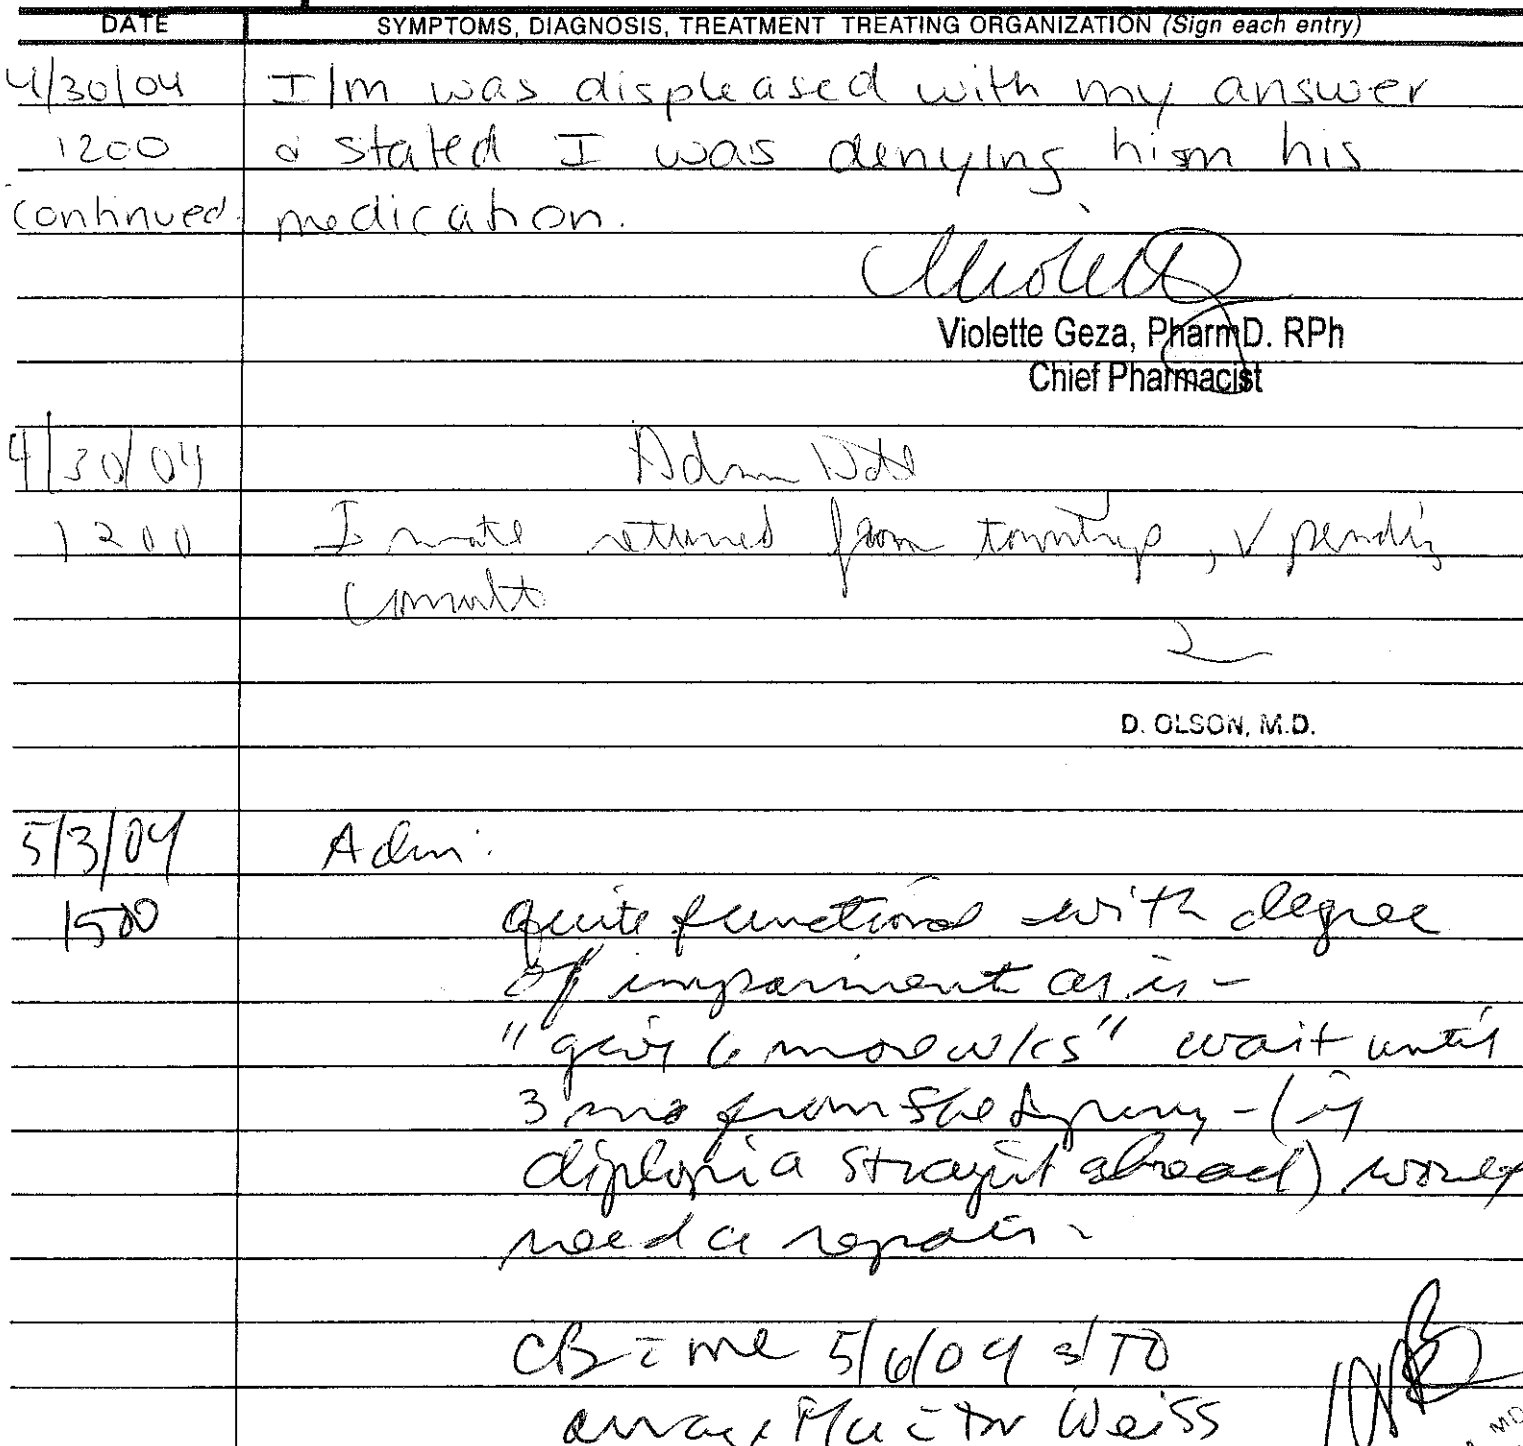 DATE SYMPTOMS, DIAGNOSIS, TREATMENT TREATING ORGANIZATION (Sign each entry)
4/30/04 I/m was displeased with my answer
1200 & stated I was denying him his
continued medication.
Violette Geza, PharmD. RPh
Chief Pharmacist
4/30/04 Admin Note
1200 Inmate returned from town trip, √ pending
consult
D. OLSON, M.D.
5/3/04 Adm:
1500 quite functional with degree
of impairment as is -
"give 6 more wks" wait until
3 mo from the injury - (if
diplopia straight ahead) would
need a repair -
CB c̄ me 5/6/04
c̄ Dr Weiss
MD